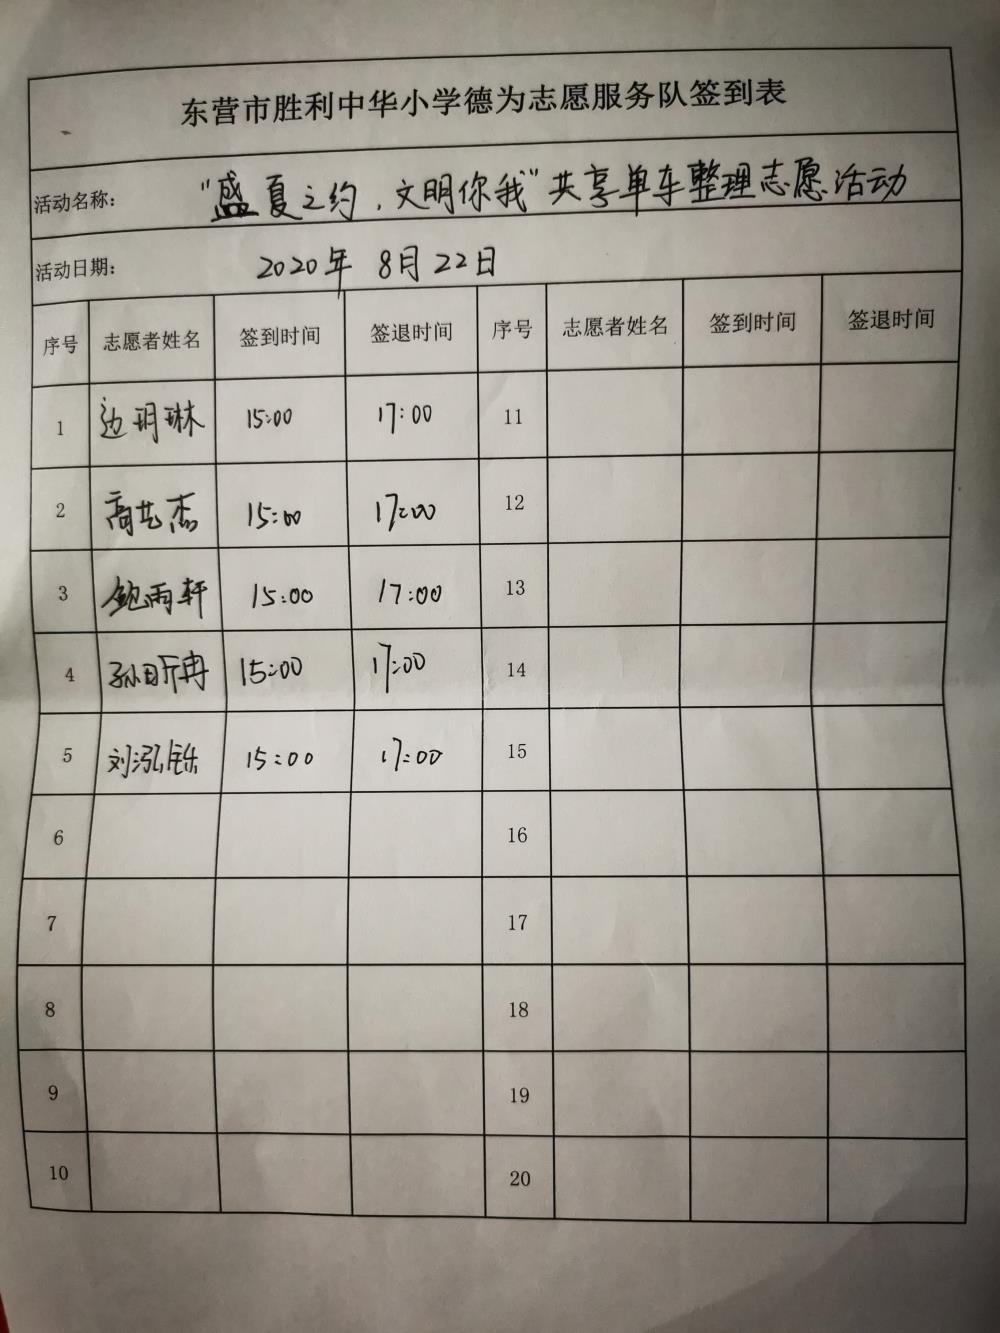 东营市胜利中华小学德为志愿服务队签到表
活动名称： “盛夏之约，文明你我”共享单车整理志愿活动
活动日期： 2020年 8月22日
序号 志愿者姓名 签到时间 签退时间 序号 志愿者姓名 签到时间 签退时间
1 边玥琳 15:00 17:00 11
2 高艺杰 15:00 17:00 12
3 鲍雨轩 15:00 17:00 13
4 孙昕冉 15:00 17:00 14
5 刘泓铄 15:00 17:00 15
6 16
7 17
8 18
9 19
10 20